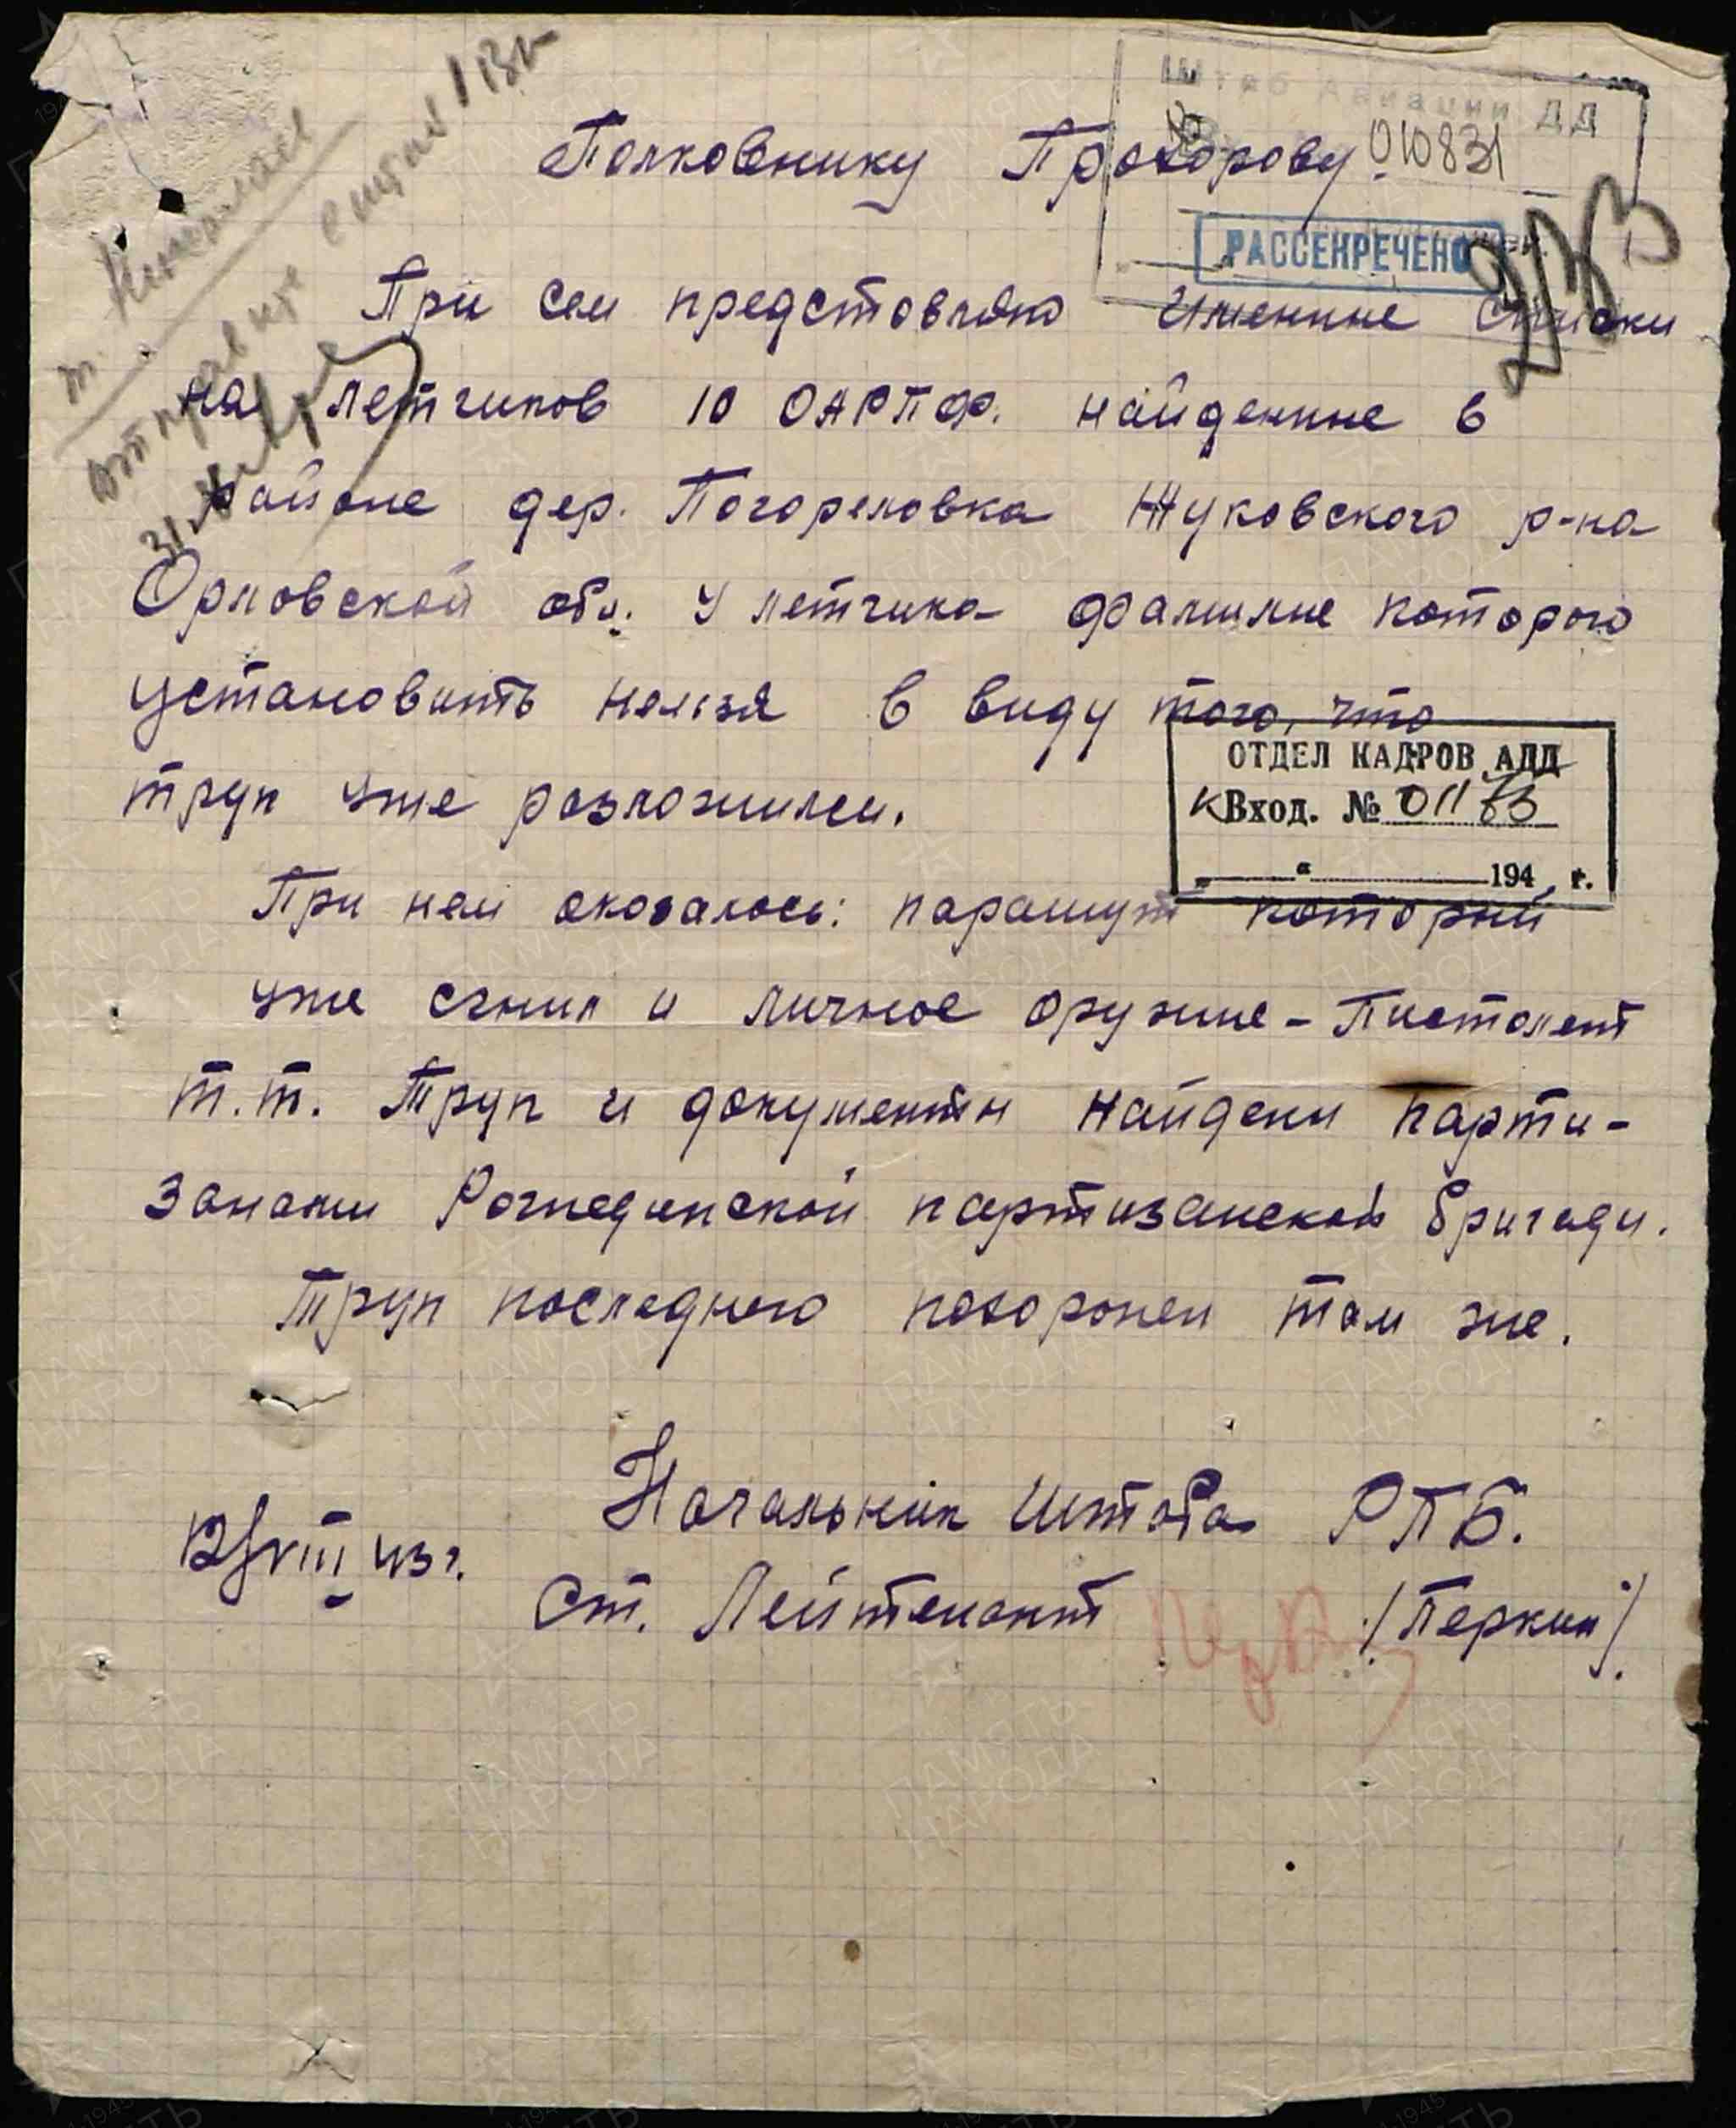 Штаб Авиации ДД
010831
Полковнику Прохорову.
РАССЕКРЕЧЕНО
При сем представляю Именные списки
на летчиков 10 ОАРПФ. найденные в
районе дер. Погореловка Жуковского р-на
Орловской обл. У летчика фамилие которого
установить нельзя в виду того, что
труп уже разложился.
ОТДЕЛ КАДРОВ АДД
Вход. № 01173
194 г.
При нем оказалось: парашут который
уже сгнил и личное оружие - Пистолент
Т.Т. Труп и документы найдены парти-
занами Рогнединской партизанской бригады.
Труп последнего похоронен там же.
Начальник Штаба РПБ.
12/VIII 43 г.
Ст. Лейтенант /Перкин/.